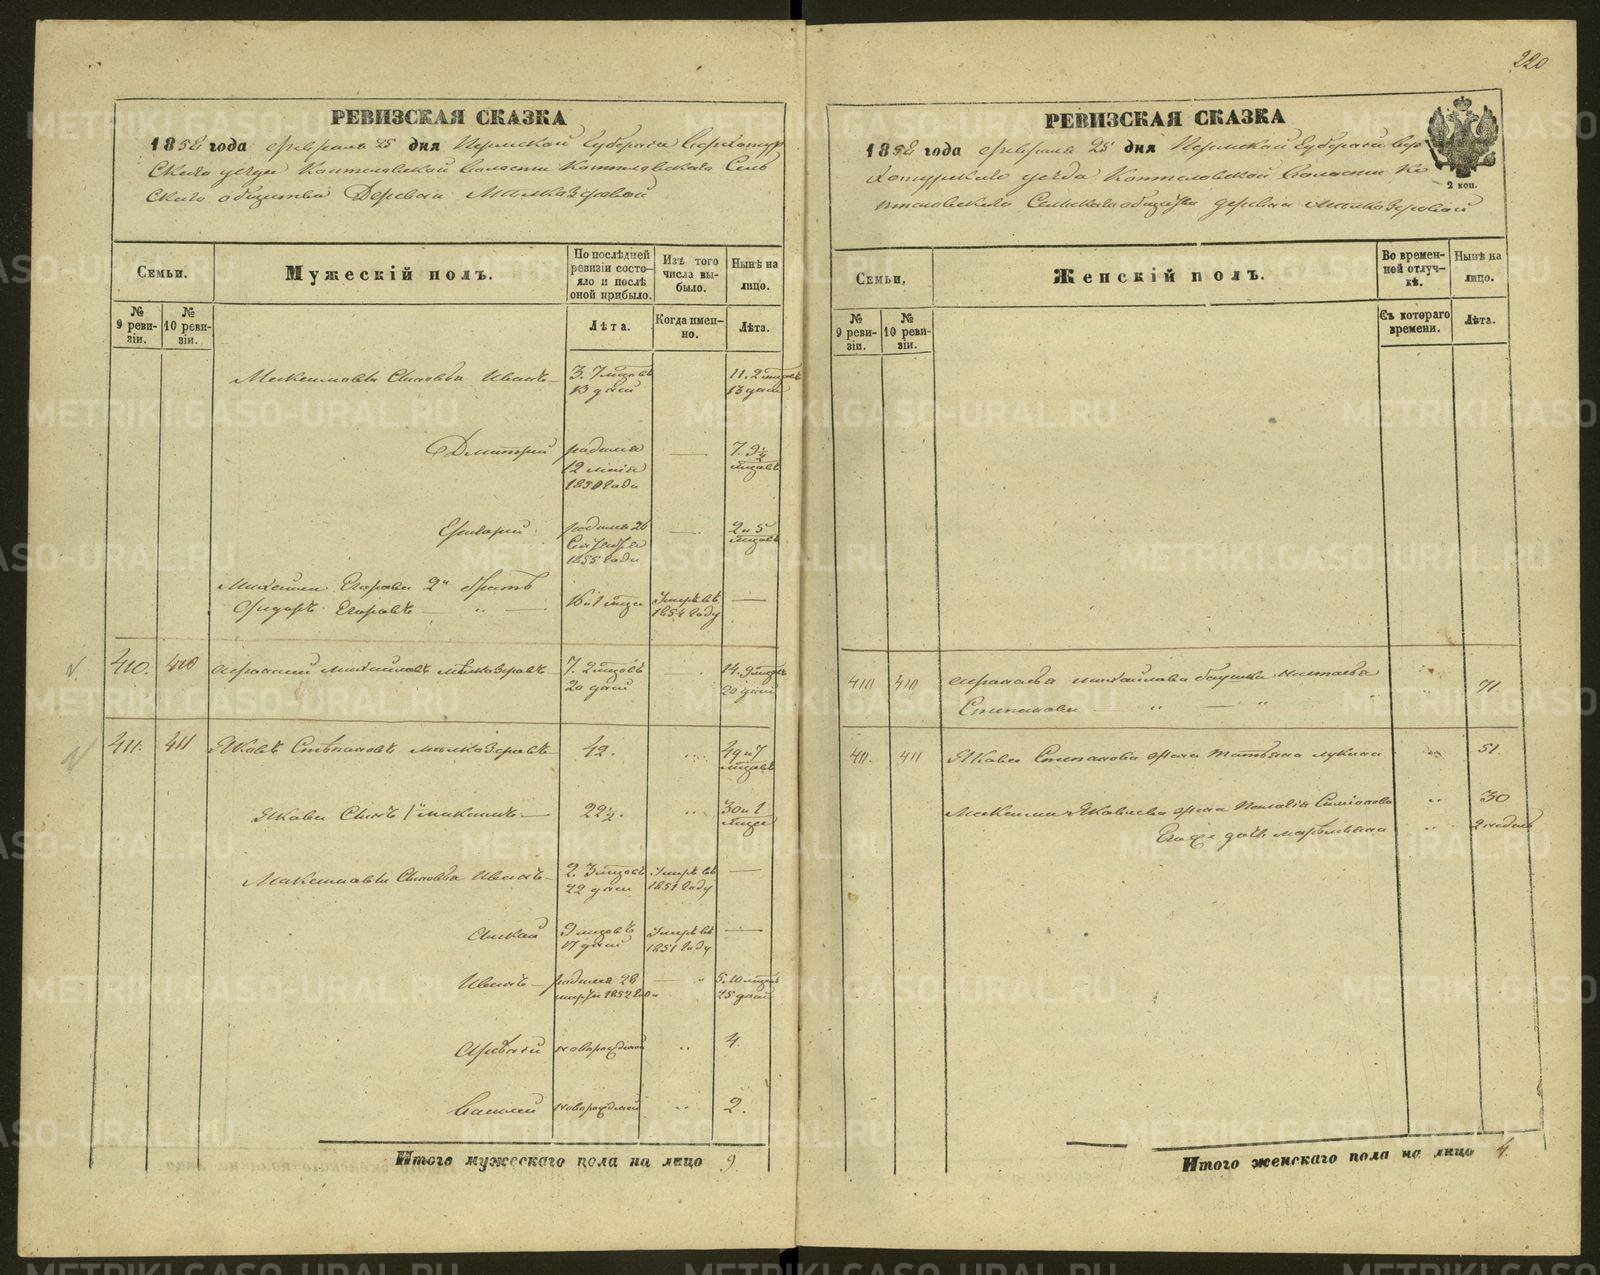 220
РЕВИЗСКАЯ СКАЗКА
1858 года февраля 25 дня Пермской Губернии Верхотур
скаго уезда Коптеловской волости Коптеловскаго Сель
скаго общества Деревни Мылкозеровой
Семьи.
Мужескій полъ.
По послѣдней ревизіи состо-
яло и послѣ оной прибыло.
Изъ того числа вы-
было.
Нынѣ на лицо.
№ 9 реви-
зіи.
№ 10 реви-
зіи.
Лѣта.
Когда имен-
но.
Лѣта.
Максимовы Сыновья Иванъ 3. 7 мцовъ 11. 2 мцовъ
13 дней 13 дней
Дмитрий родился — 7. 9½
12 мцовъ
Григорий родился 26 — 2 и 5
Сентября мцовъ
1855 года
Михаила Егорова 2й братъ
Федоръ Егоровъ — " — 16 и 1 мцъ Умръ въ —
1854 году
410. 410 Афанасий Михайловъ Мылкозеровъ 7. 2 мцовъ — 14. 9 мцов
20 дней 20 дней
411. 411 Яковъ Степановъ Мылкозеровъ 42. " 49 и 7
мцовъ
Якова Сынъ 1й Максимъ 22½. " 30 и 1
мцъ
Максимовы Сыновья Иванъ 2. 3 мцовъ Умръ въ —
22 дни 1851 году
9 мцовъ Умръ въ —
17 дней 1851 году
Иванъ родился 28 — " 5. 10 мцов
марта 1852 года 25 дней
новорожденой " 4.
Василей новорожденой " 2.
Итого мужескаго пола на лицо 9.
РЕВИЗСКАЯ СКАЗКА
1858 года февраля 25 дня Пермской Губернии Вер
хотурскаго уезда Коптеловской волости Ко
птеловскаго Сельскаго общества деревни Мылкозеровой
2 коп.
Семьи.
Женскій полъ.
Во времен-
ной отлуч-
кѣ.
Нынѣ на лицо.
№ 9 реви-
зіи.
№ 10 реви-
зіи.
Съ котораго времени.
Лѣта.
410 410 Афанасья Михайлова бабушка Наталья
Степанова — " — " " 71
411. 411 Якова Степанова жена Татьяна Лукина " 51.
Максима Яковлева жена Пелагия Симионова " 30
Его дочь Маремьяна " 2 недель
Итого женскаго пола на лицо 4.
METRIKI.GASO-URAL.RU